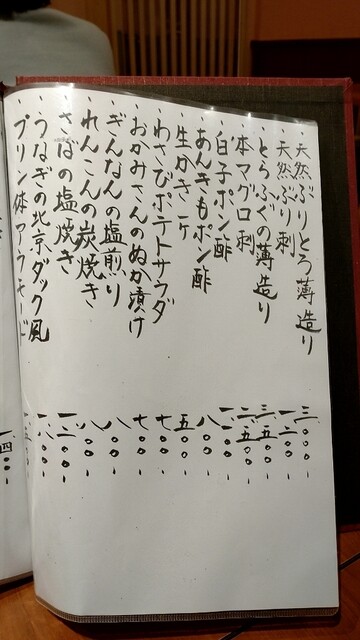 天然ぶりとろ薄造り 三〇〇〇
天然ぶり刺 一二〇〇
とらふぐの薄造り 三五〇〇
本マグロ刺 二五〇〇
白子ポン酢
あんきもポン酢 八〇〇
生かき一ケ 五〇〇
わさびポテトサラダ 七〇〇
おかみさんのぬか漬け 七〇〇
ぎんなんの塩煎り 八〇〇
れんこんの炭焼き 八〇〇
さばの塩焼き
うなぎの北京ダック風 一八〇〇
プリン体アラモード